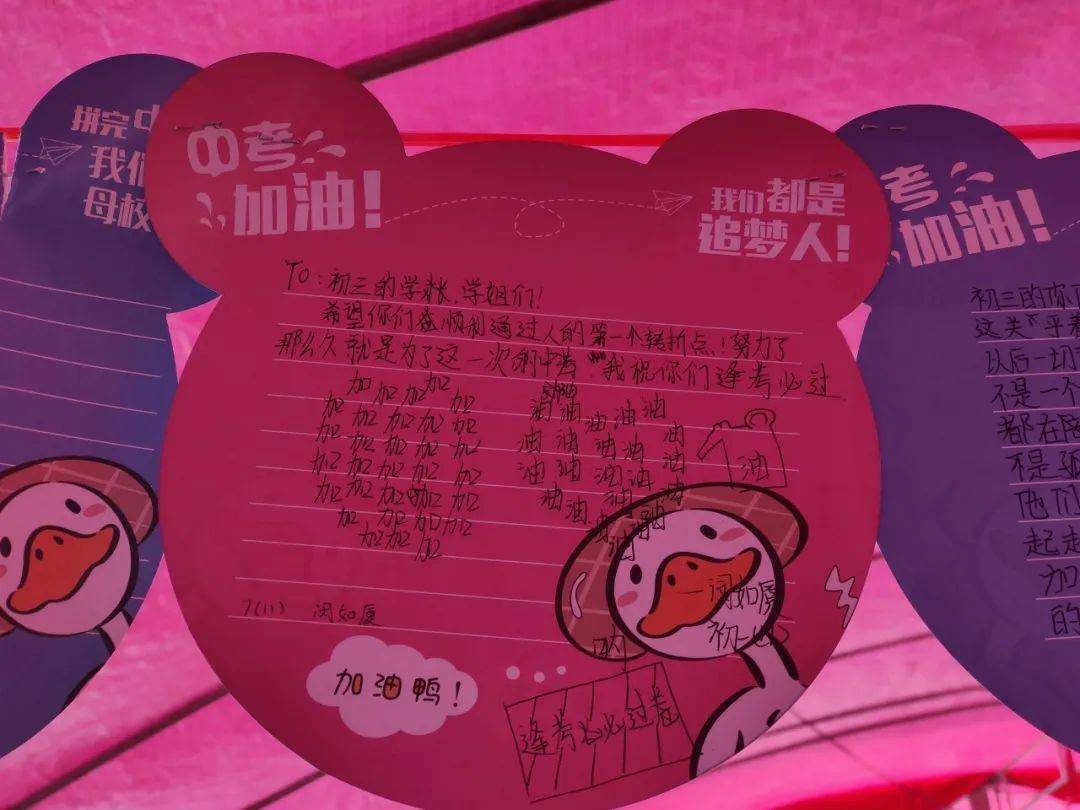 拼完
我们
母校
中考
加油!
我们都是
追梦人!
考
加油!
TO:初三的学长、学姐们!
希望你们在顺利通过人的第一个转折点!努力了
那么久就是为了这一次的中考,我祝你们逢考必过
加 加 加 加 加 油 油 油 油 油
加 加 加 加 加 油 油 油 油 油
加 加 加 加 加 油 油 油 油 油
加 加 加 加 加 油 油 油
加 加 加 加
加 加 加
油
7(11) 闵如厦
一闵如厦
初一
加油鸭!
逢考必过
初三的你
这关"平
以后一切
不是一个
都在
不是
他们
起走
加
的